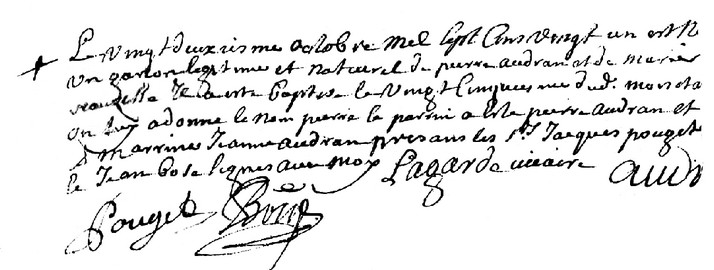 Le vingt deuxiesme octobre mil sept cens vingt un est n
un garson legitime et naturel de pierre audran et de marie
il a este baptise le vingt cinquiesme dud. mois et a
on luy a donne le nom pierre le parrin a este pierre audran et
marrine Jeanne audran presans les Srs Jacques pouget
le Jean bose signes avec moy Lagarde vicaire audr
Pouget Bose